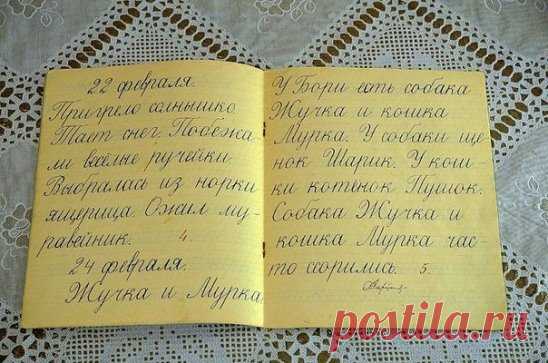 22 февраля.
Пригрело солнышко
Тает снег. Побежа-
ли весёлые ручейки.
Выбралась из норки
ящерица. Ожил му-
равейник. 4
24 февраля.
Жучка и Мурка.
У Бори есть собака
Жучка и кошка
Мурка. У собаки ще-
нок Шарик. У кош-
ки котёнок Пушок.
Собака Жучка и
кошка Мурка час-
то ссорились. 5.
postila.ru